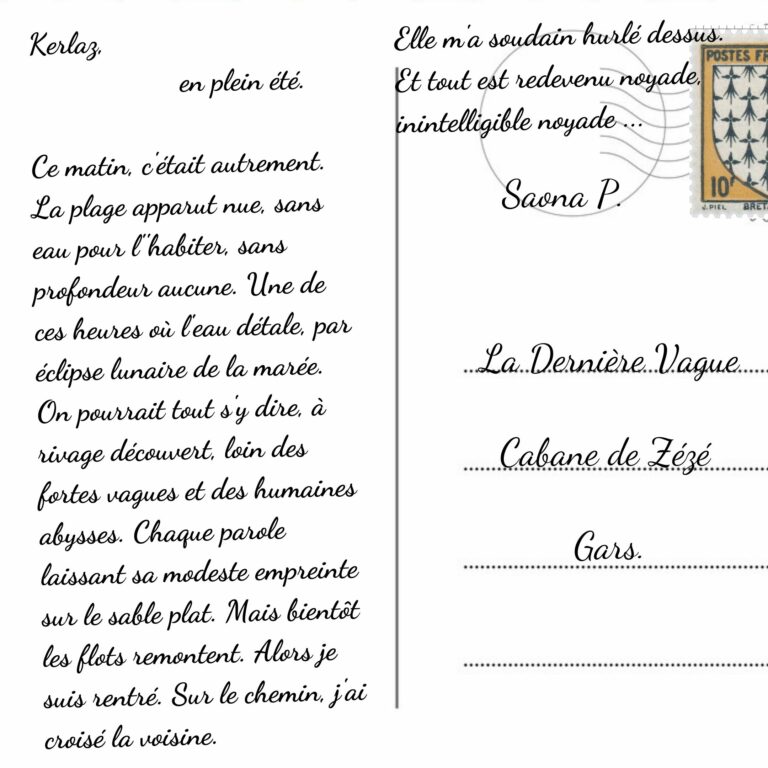 Kerlaz,
en plein été.
Ce matin, c'était autrement.
La plage apparut nue, sans
eau pour l''habiter, sans
profondeur aucune. Une de
ces heures où l'eau détale, par
éclipse lunaire de la marée.
On pourrait tout s'y dire, à
rivage découvert, loin des
fortes vagues et des humaines
abysses. Chaque parole
laissant sa modeste empreinte
sur le sable plat. Mais bientôt
les flots remontent. Alors je
suis rentré. Sur le chemin, j'ai
croisé la voisine.
Elle m'a soudain hurlé dessus.
Et tout est redevenu noyade,
inintelligible noyade ...
Saona P.
POSTES FR
10F
J. PIEL BRETA
La Dernière Vague
Cabane de Zézé
Gars.